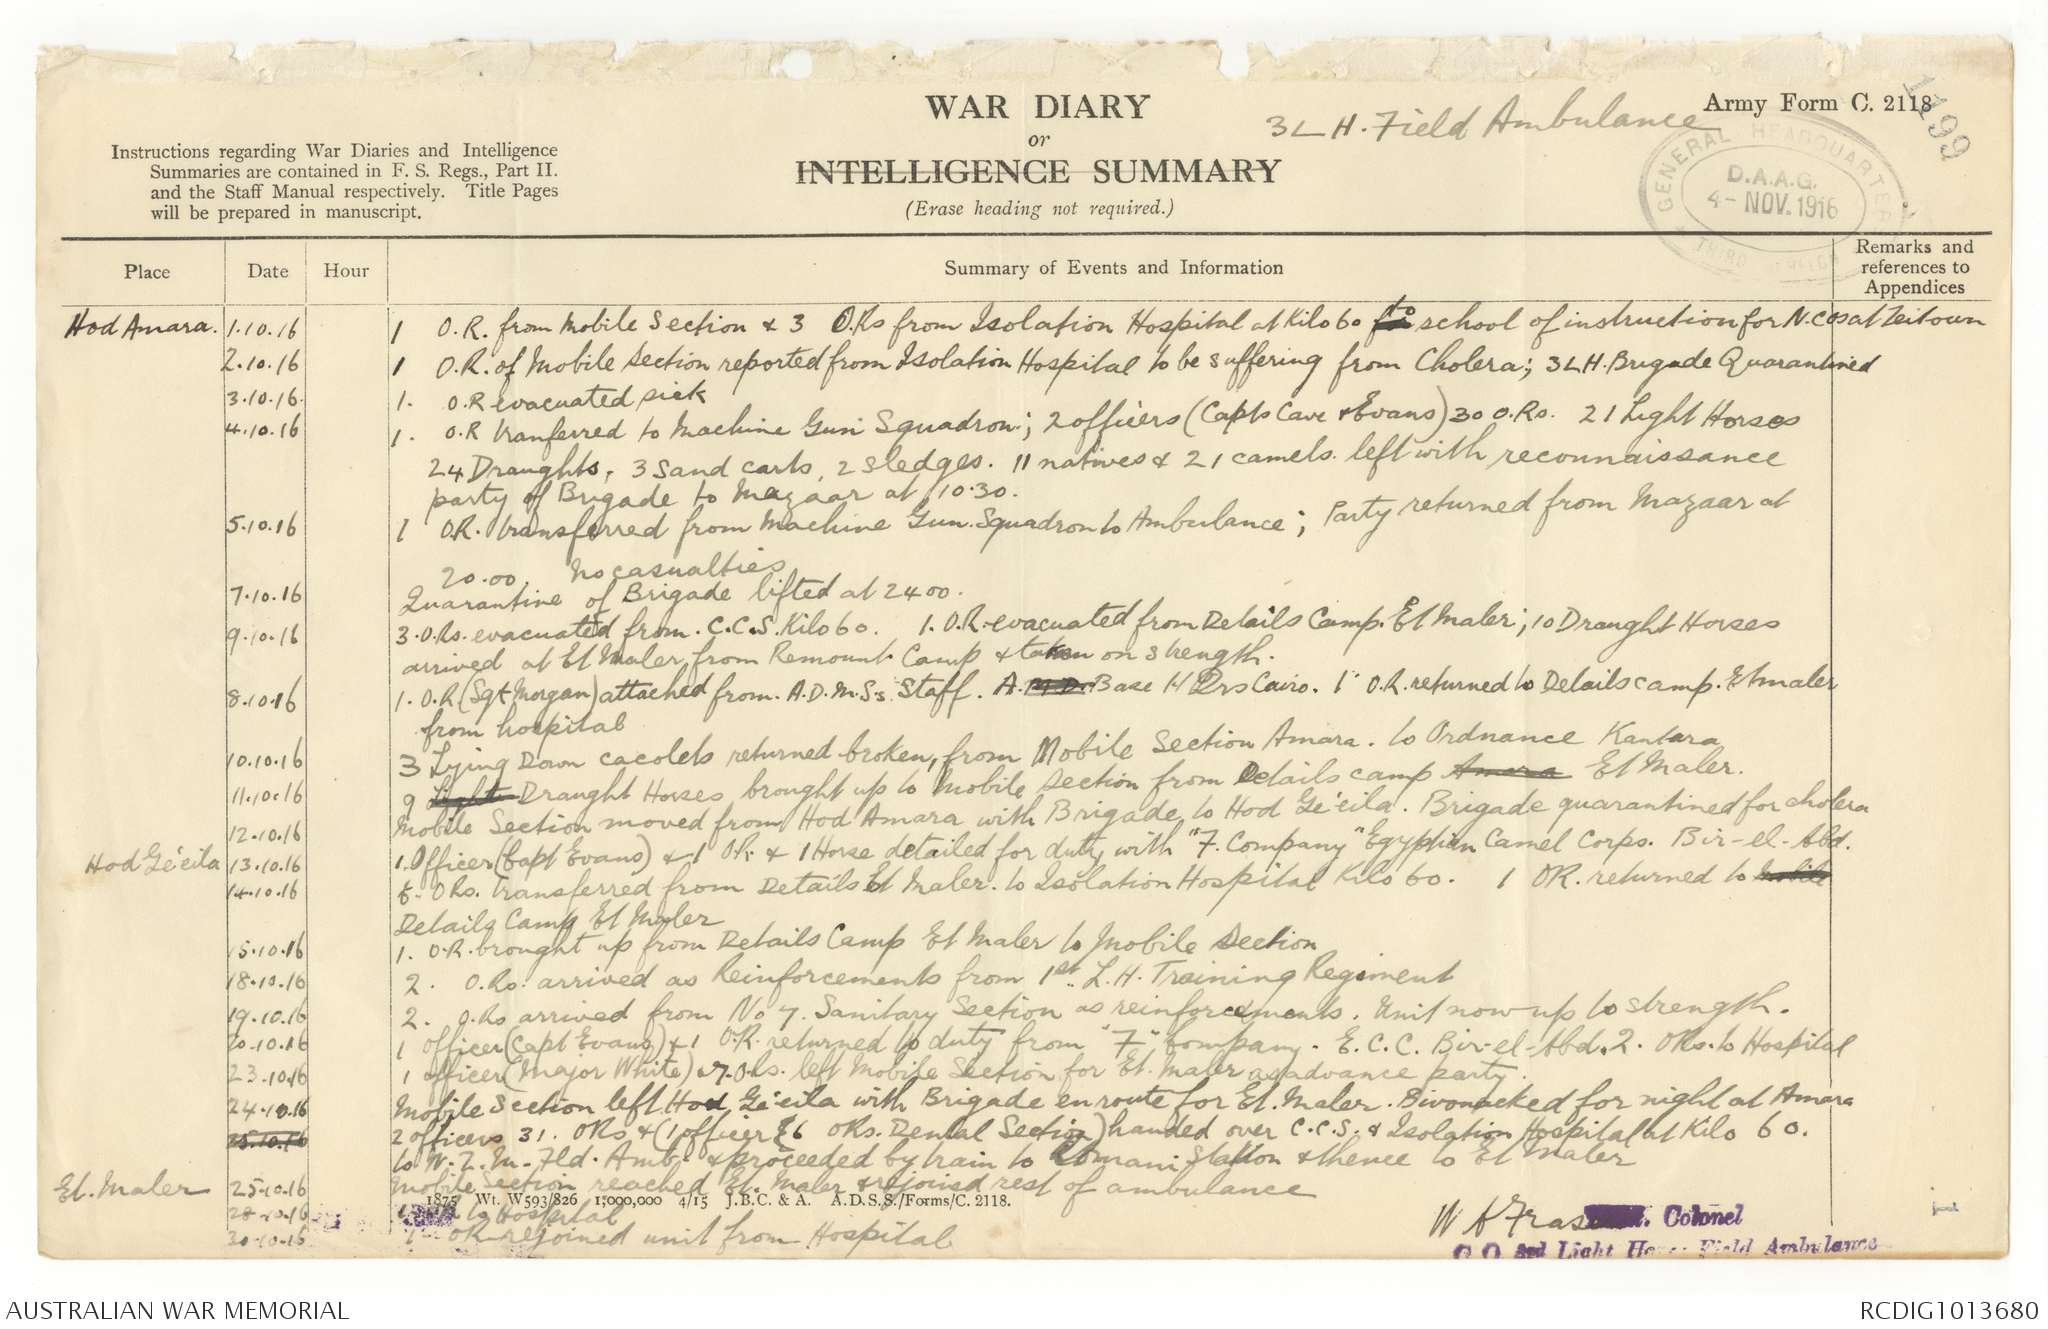 WAR DIARY
or
INTELLIGENCE SUMMARY
(Erase heading not required.)
3 L H. Field Ambulance
Army Form C. 2118
1199
Instructions regarding War Diaries and Intelligence
Summaries are contained in F. S. Regs., Part II.
and the Staff Manual respectively. Title Pages
will be prepared in manuscript.
GENERAL HEADQUARTERS
D.A.A.G.
4- NOV. 1916
THIRD
Place Date Hour Summary of Events and Information Remarks and references to Appendices
Hod Amara. 1.10.16 1 O.R. from Mobile Section & 3 O.Rs from Isolation Hospital at Kilo 60 to school of instruction for N.COs at Zeitoun
2.10.16 1 O.R. of Mobile Section reported from Isolation Hospital to be suffering from Cholera; 3LH. Brigade Quarantined
3.10.16. 1. O.R evacuated sick
4.10.16 1. O.R tranferred to Machine Gun Squadron; 2 officers (Capts Cave & Evans) 30 O.Rs. 21 Light Horses
24 Draughts, 3 Sand carts, 2 sledges. 11 natives & 21 camels. left with reconnaissance
party of Brigade to Mazaar at 10.30.
5.10.16 1 O.R. transferred from Machine Gun Squadron to Ambulance; Party returned from Mazaar at
20.00. No casualties
7.10.16 Quarantine of Brigade lifted at 2400.
9.10.16 3. O.Rs. evacuated from C.C.S. Kilo 60. 1. O.R. evacuated from Details Camp. Et Maler; 10 Draught Horses
arrived at Et Maler from Remount Camp & taken on strength.
8.10.16 1. O.R. (Sgt Morgan) attached from A.D.M.Ss. Staff. A. M.D. Base H Qrs Cairo. 1 O.R. returned to Details camp. Et maler
from hospital
10.10.16 3 Lying Down cacolets returned broken, from Mobile Section Amara. to Ordnance Kantara
11.10.16 9 Light Draught Horses brought up to Mobile Section from Details camp Amara Et Maler.
12.10.16 Mobile Section moved from Hod Amara with Brigade to Hod Ge'eila. Brigade quarantined for cholera
Hod Ge'eila 13.10.16 1. Officer (Capt Evans) & 1 O.R. & 1 Horse detailed for duty with "F. Company" Egyptian Camel Corps. Bir-el-Abd.
14.10.16 O.Rs. transferred from Details Et Maler. to Isolation Hospital Kilo 60. 1 OR. returned to Mobile
Details Camp Et Maler
15.10.16 1. O.R. brought up from Details Camp Et Maler to Mobile Section
18.10.16 2. O.Rs. arrived as Reinforcements from 1st L.H. Training Regiment
19.10.16 2. O.Rs arrived from No 7. Sanitary Section as reinforcements. Unit now up to strength.
20.10.16 1 officer (Capt Evans) & 1 O.R. returned to duty from "F" Company. E.C.C. Bir-el-Abd. 2. ORs. to Hospital
23.10.16 1 officer (Major White) & 7. O.Rs. left Mobile Section for Et. Maler as advance party.
24.10.16 Mobile Section left Hod Ge'eila with Brigade en route for Et. Maler. Bivouacked for night at Amara
25.10.16 2 officers 31. ORs & (1 officer & 6 ORs. Dental Section) handed over C.C.S. & Isolation Hospital at Kilo 60.
to N.Z.M. Fld. Amb. & proceeded by train to Romani Station & thence to Et Maler
Et. Maler 25.10.16 Mobile Section reached Et. Maler & rejoined rest of ambulance
28.10.16 1 OR to Hospital
30.10.16 1 OR rejoined unit from Hospital
1875 Wt. W593/826 1,000,000 4/15 J.B.C. & A. A.D.S.S./Forms/C. 2118.
W A Fraser Colonel
C.O. 3rd Light Horse Field Ambulance
AUSTRALIAN WAR MEMORIAL
RCDIG1013680